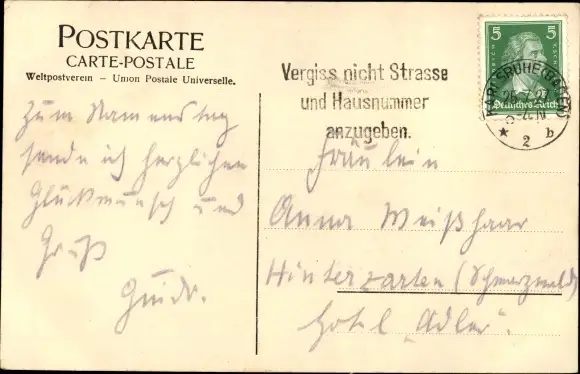 POSTKARTE
CARTE-POSTALE
Weltpostverein – Union Postale Universelle.
Zum Namenstag
sende ich herzlichen
Glückwunsch und
Gruß
Guido.
Vergiss nicht Strasse
und Hausnummer
anzugeben.
5 5
Deutsches Reich
KARLSRUHE (BADEN)
* 2 b
Fräulein
Anna Weißhaar
Hinterzarten (Schwarzwald)
Hotel "Adler".